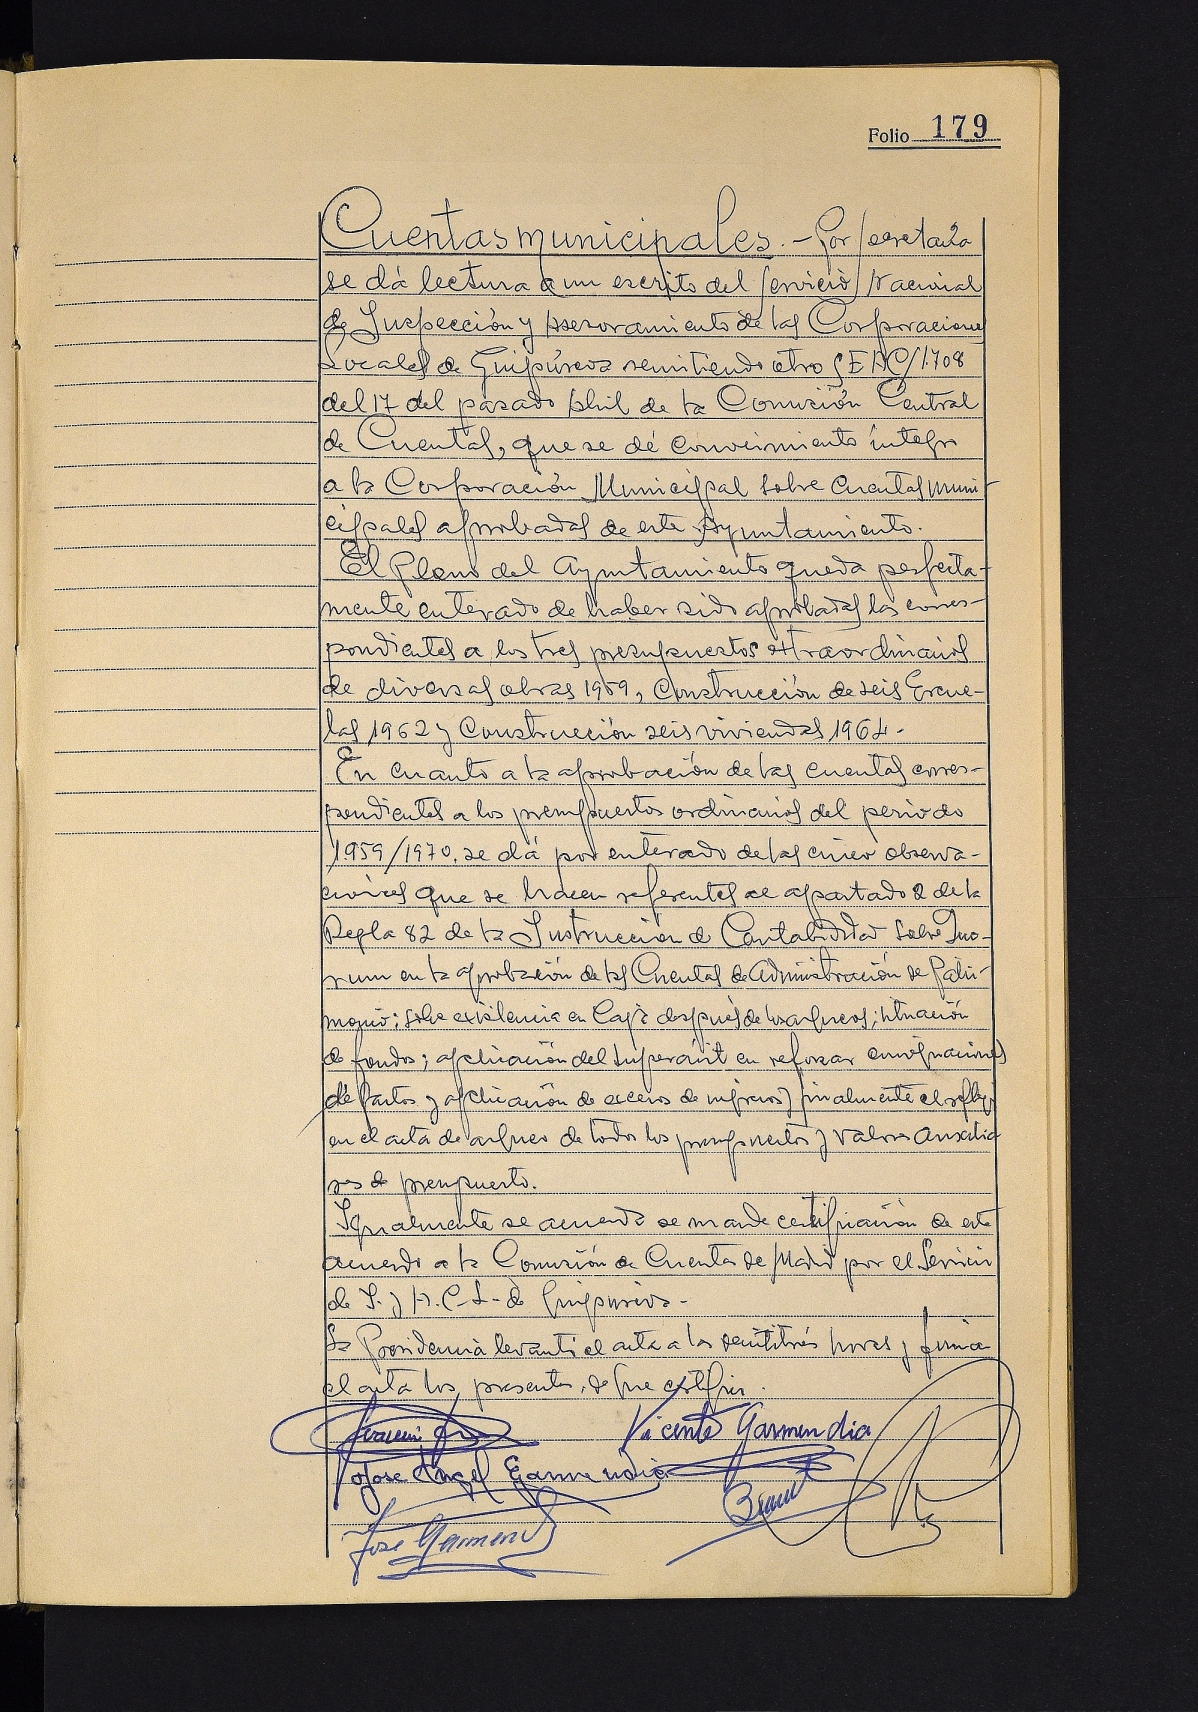 Folio 179
Cuentas municipales. - Por Secretaría
se dá lectura a un escrito del Servicio Nacional
de Inspección y Asesoramiento de las Corporaciones
Locales de Guipúzcoa remitiendo otro SEAC/1.708
del 17 del pasado Abril de la Comisión Central
de Cuentas, que se dé conocimiento íntegro
a la Corporación Municipal sobre cuentas muni-
cipales aprobadas de este Ayuntamiento.
El Pleno del Ayuntamiento queda perfecta-
mente enterado de haber sido aprobadas las corres-
pondientes a los tres presupuestos extraordinarios
de diversas obras 1959, Construcción de seis Escue-
las 1962 y Construcción seis viviendas 1964.
En cuanto a la aprobación de las cuentas corres-
pondientes a los presupuestos ordinarios del periodo
1959/1970, se dá por enterado de las cinco observa-
ciones que se hacen referentes al apartado 2 de la
Regla 82 de la Instrucción de Contabilidad sobre Quo-
rum en la aprobación de las Cuentas de Administración de Patri-
monio; sobre existencia en Caja después de los arqueos; situación
de fondos; aplicación del superávit en reforzar consignaciones
de Gastos y aplicación de excesos de ingresos y finalmente el reflejo
en el acta de arqueo de todos los presupuestos y Valores Auxilia
res de presupuesto.
Igualmente se acuerda se mande certificación de este
acuerdo a la Comisión de Cuentas de Madrid por el Servicio
de I. y A. C. L. de Guipúzcoa.
La Presidencia levantó el acta a las veintitrés horas y firma
el acta los presentes, de que certifico.
Vicente Garmendia
Jose Angel Garmendia
Jose Garmend